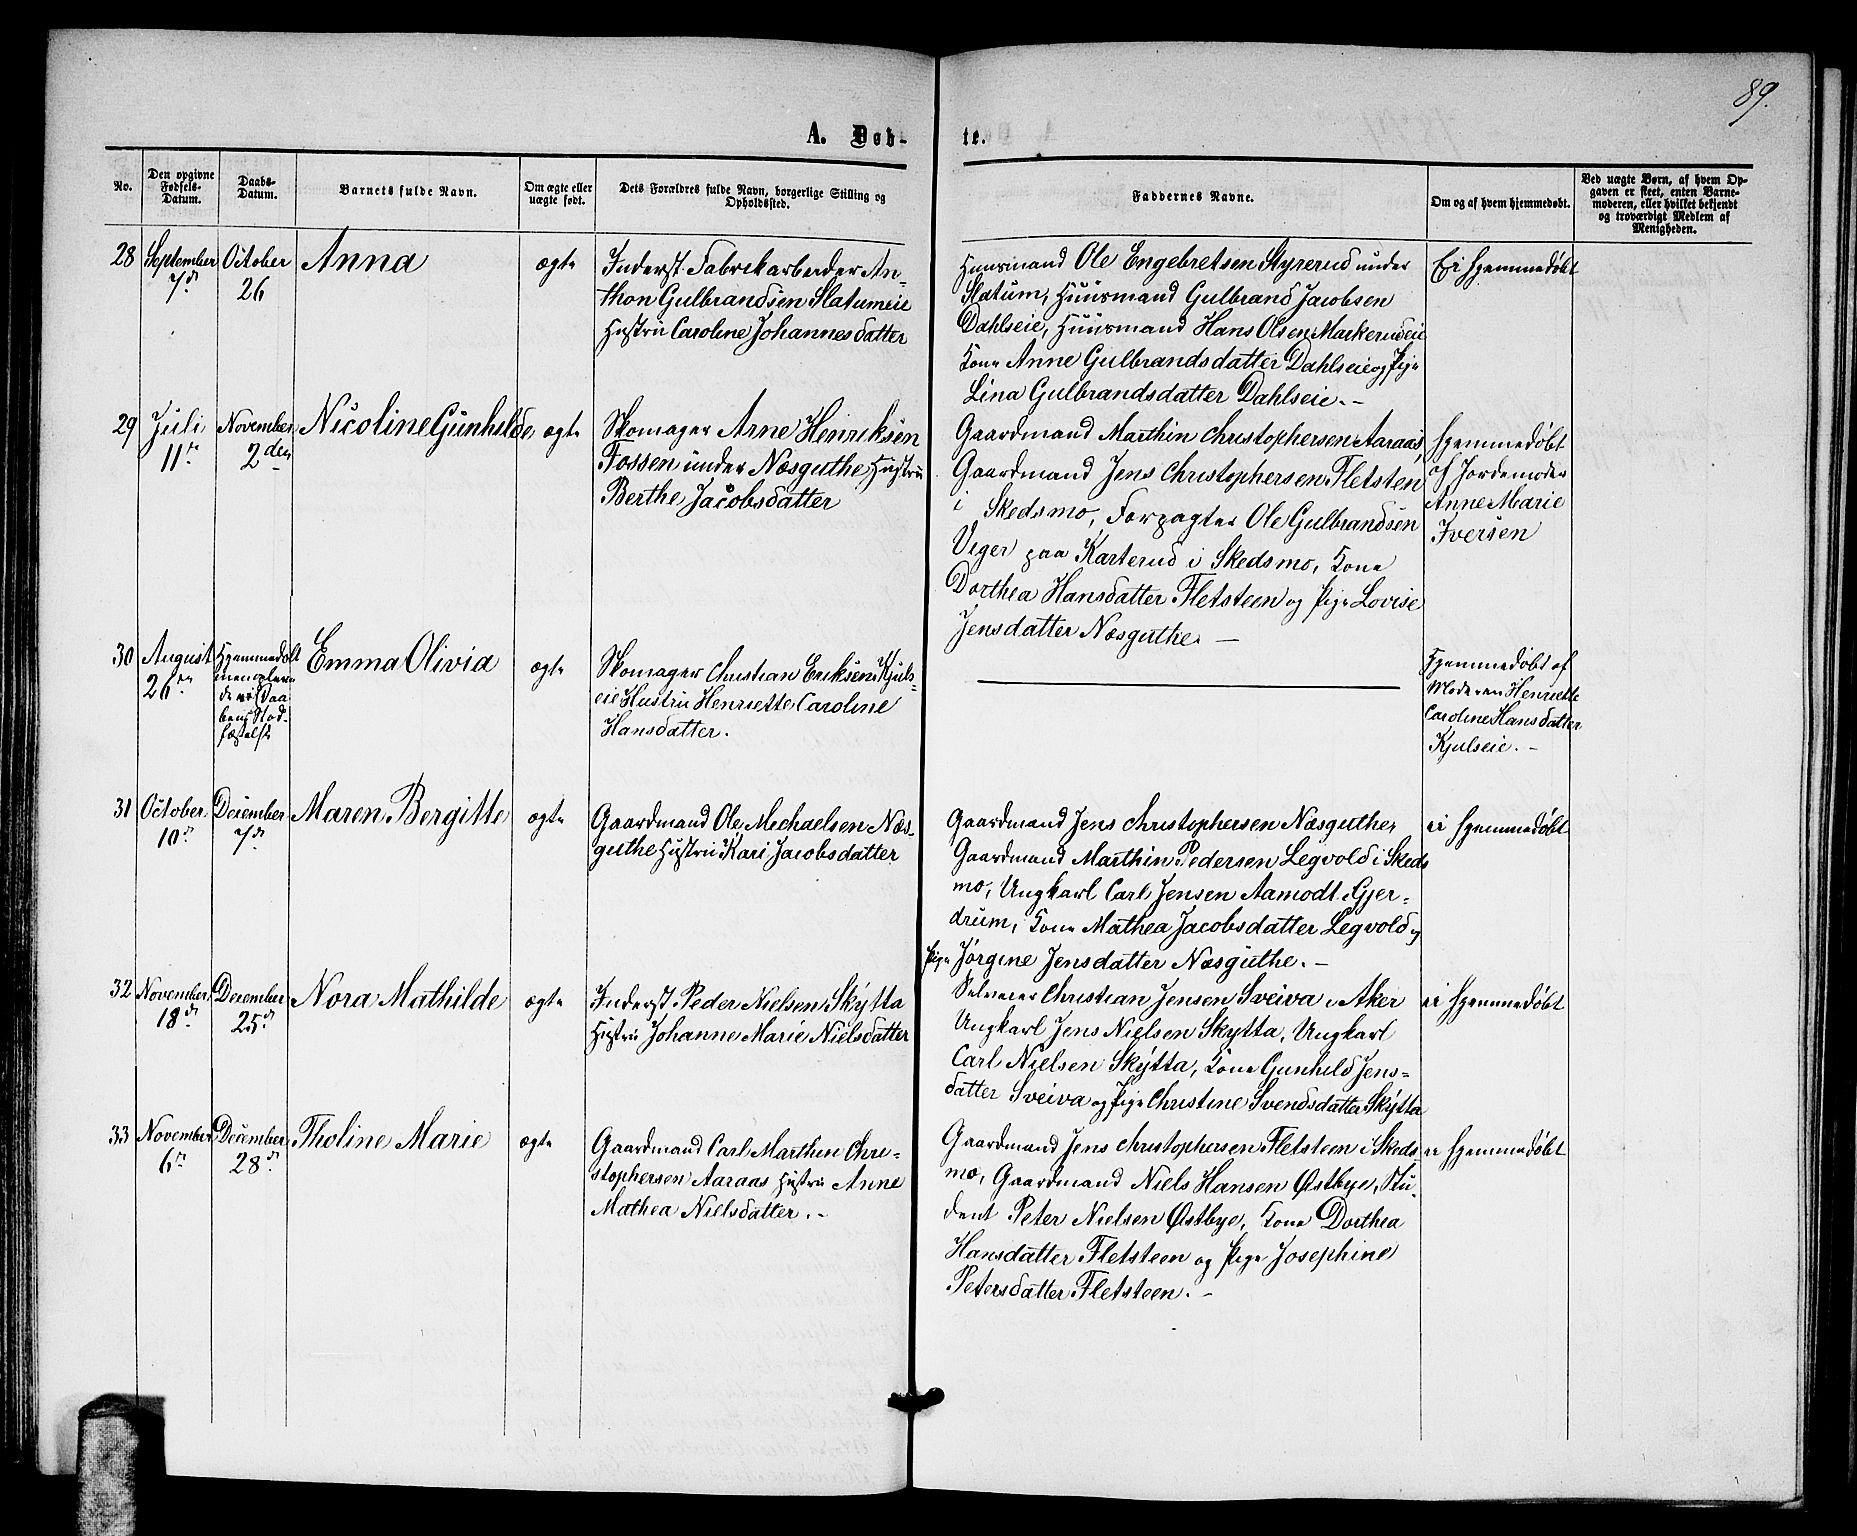 89.
A. Døb-
te.
No.
Den opgivne
Fødsels-
Datum.
Daabs-
Datum.
Barnets fulde Navn.
Om ægte eller
uægte født.
Dets Forældres fulde Navn, borgerlige Stilling og
Opholdssted.
Faddernes Navne.
Om og af hvem hjemmedøbt.
Ved uægte Børn, af hvem Op-
gaven er skeet, enten Barne-
moderen, eller hvilket bekjendt
og troværdigt Medlem af
Menigheden.
28
September
7d
October
26
Anna
ægte
Inderst Fabrikarbeider An-
thon Gulbrandsen Slatumeie
Hustru Caroline Johannesdatter
Huusmand Ole Engebretsen Styrerud under
Slatum, Huusmand Gulbrand Jacobsen
Dahlseie, Huusmand Hans Olsen Markerudeie
Kone Anne Gulbrandsdatter Dahlseie og Pige
Lina Gulbrandsdatter Dahlseie.-
Ei hjemmedøbt
29
Juli
11te
November
2den
Nicoline Gunhilde
ægte
Skomager Arne Henriksen
Fossen under Næsguthe Hustru
Berthe Jacobsdatter
Gaardmand Marthin Christophersen Aaraas,
Gaardmand Jens Christophersen Fletsten
i Skedsmo, Forpagter Ole Gulbrandsen
Viger paa Karterud i Skedsmo, Kone
Dorthea Hansdatter Fletsteen og Pige Lovise
Jensdatter Næsguthe. -
Hjemmedøbt
af Jordemoder
Anne Marie
Iversen
30
August
26de
Hjemmedøbt
men
Daa
bens Stad-
fæstelse
Emma Olivia
ægte
Skomager Christian Eriksen Kjuls-
eie Hustru Henriette Caroline
Hansdatter.
Hjemmedøbt af
Moderen Henriette
Caroline Hansdatter
Kjulseie. -
31
October
10d
December
7d
Maren Bergitte
ægte
Gaardmand Ole Michaelsen Næs-
guthe Hustru Kari Jacobsdatter
Gaardmand Jens Christophersen Næsguthe,
Gaardmand Marthin Pedersen Legvold i Skeds
mo, Ungkarl Carl Jensen Aamodt i Gjer-
drum, Kone Mathea Jacobsdatter Legvold og
Pige Jørgine Jensdatter Næsguthe. -
ei hjemmedøbt
32
November
18d
December
25d
Nora Mathilde
ægte
Inderst Peder Nielsen Skÿtta
Hustru Johanne Marie Nielsdatter
Selveier Christian Jensen Sveiva i Aker
Ungkarl Jens Nielsen Skytta, Ungkarl
Carl Nielsen Skÿtta, Kone Gunhild Jens-
datter Sveiva og Pige Christine Svendsdatter Skÿtta
ei hjemmedøbt
33
November
6te
December
28d
Tholine Marie
ægte
Gaardmand Carl Marthin Chri-
stophersen Aaraas Hustru Anne
Mathea Nielsdatter. -
Gaardmand Jens Christophersen Fletsteen i Skeds-
mo, Gaardmand Niels Hansen Østbye, Stu-
dent Peter Nielsen Østbye, Kone Dorthea
Hansdatter Fletsteen og Pige Josephine
Petersdatter Fletsteen. -
ei hjemmedøbt